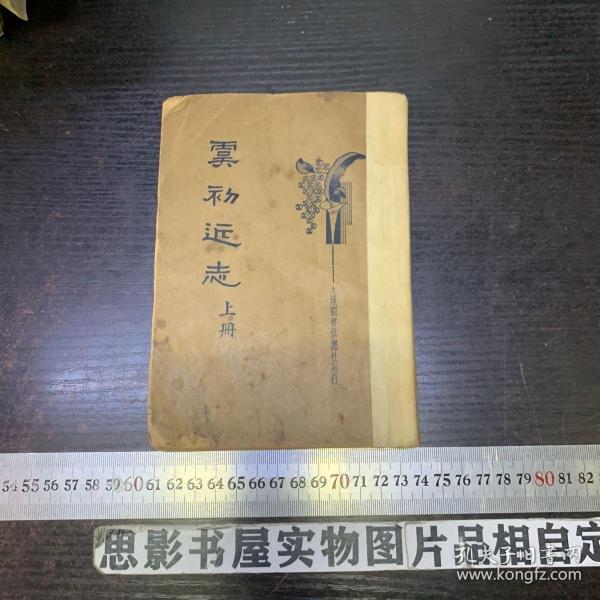 虞初近志
上册
大達圖書供應社刊行
54 55 56 57 58 59 60 61 62 63 64 65 66 67 68 69 70 71 72 73 74 75 76 77 78 79 80 81 82
思影书屋实物图片品相自定
孔夫子旧书网
www.kongfz.com